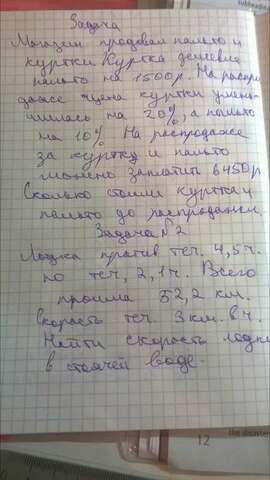 Задача
Магазин продавал пальто и
куртки Куртка дешевле
пальто на 1500р. На распро
даже цена куртки умень-
шилась на 20%, а пальто
на 10% На распродаже
за куртку и пальто
можно заплатить 6450р
Сколько стоили куртка и
пальто до распродажи.
Задача №2
Лодка против теч. 4,5ч.
по теч, 2,1ч. Всего
прошла 52,2 км.
Скорость теч. 3км. в ч.
Найти скорость лодки
в стоячей воде.
12